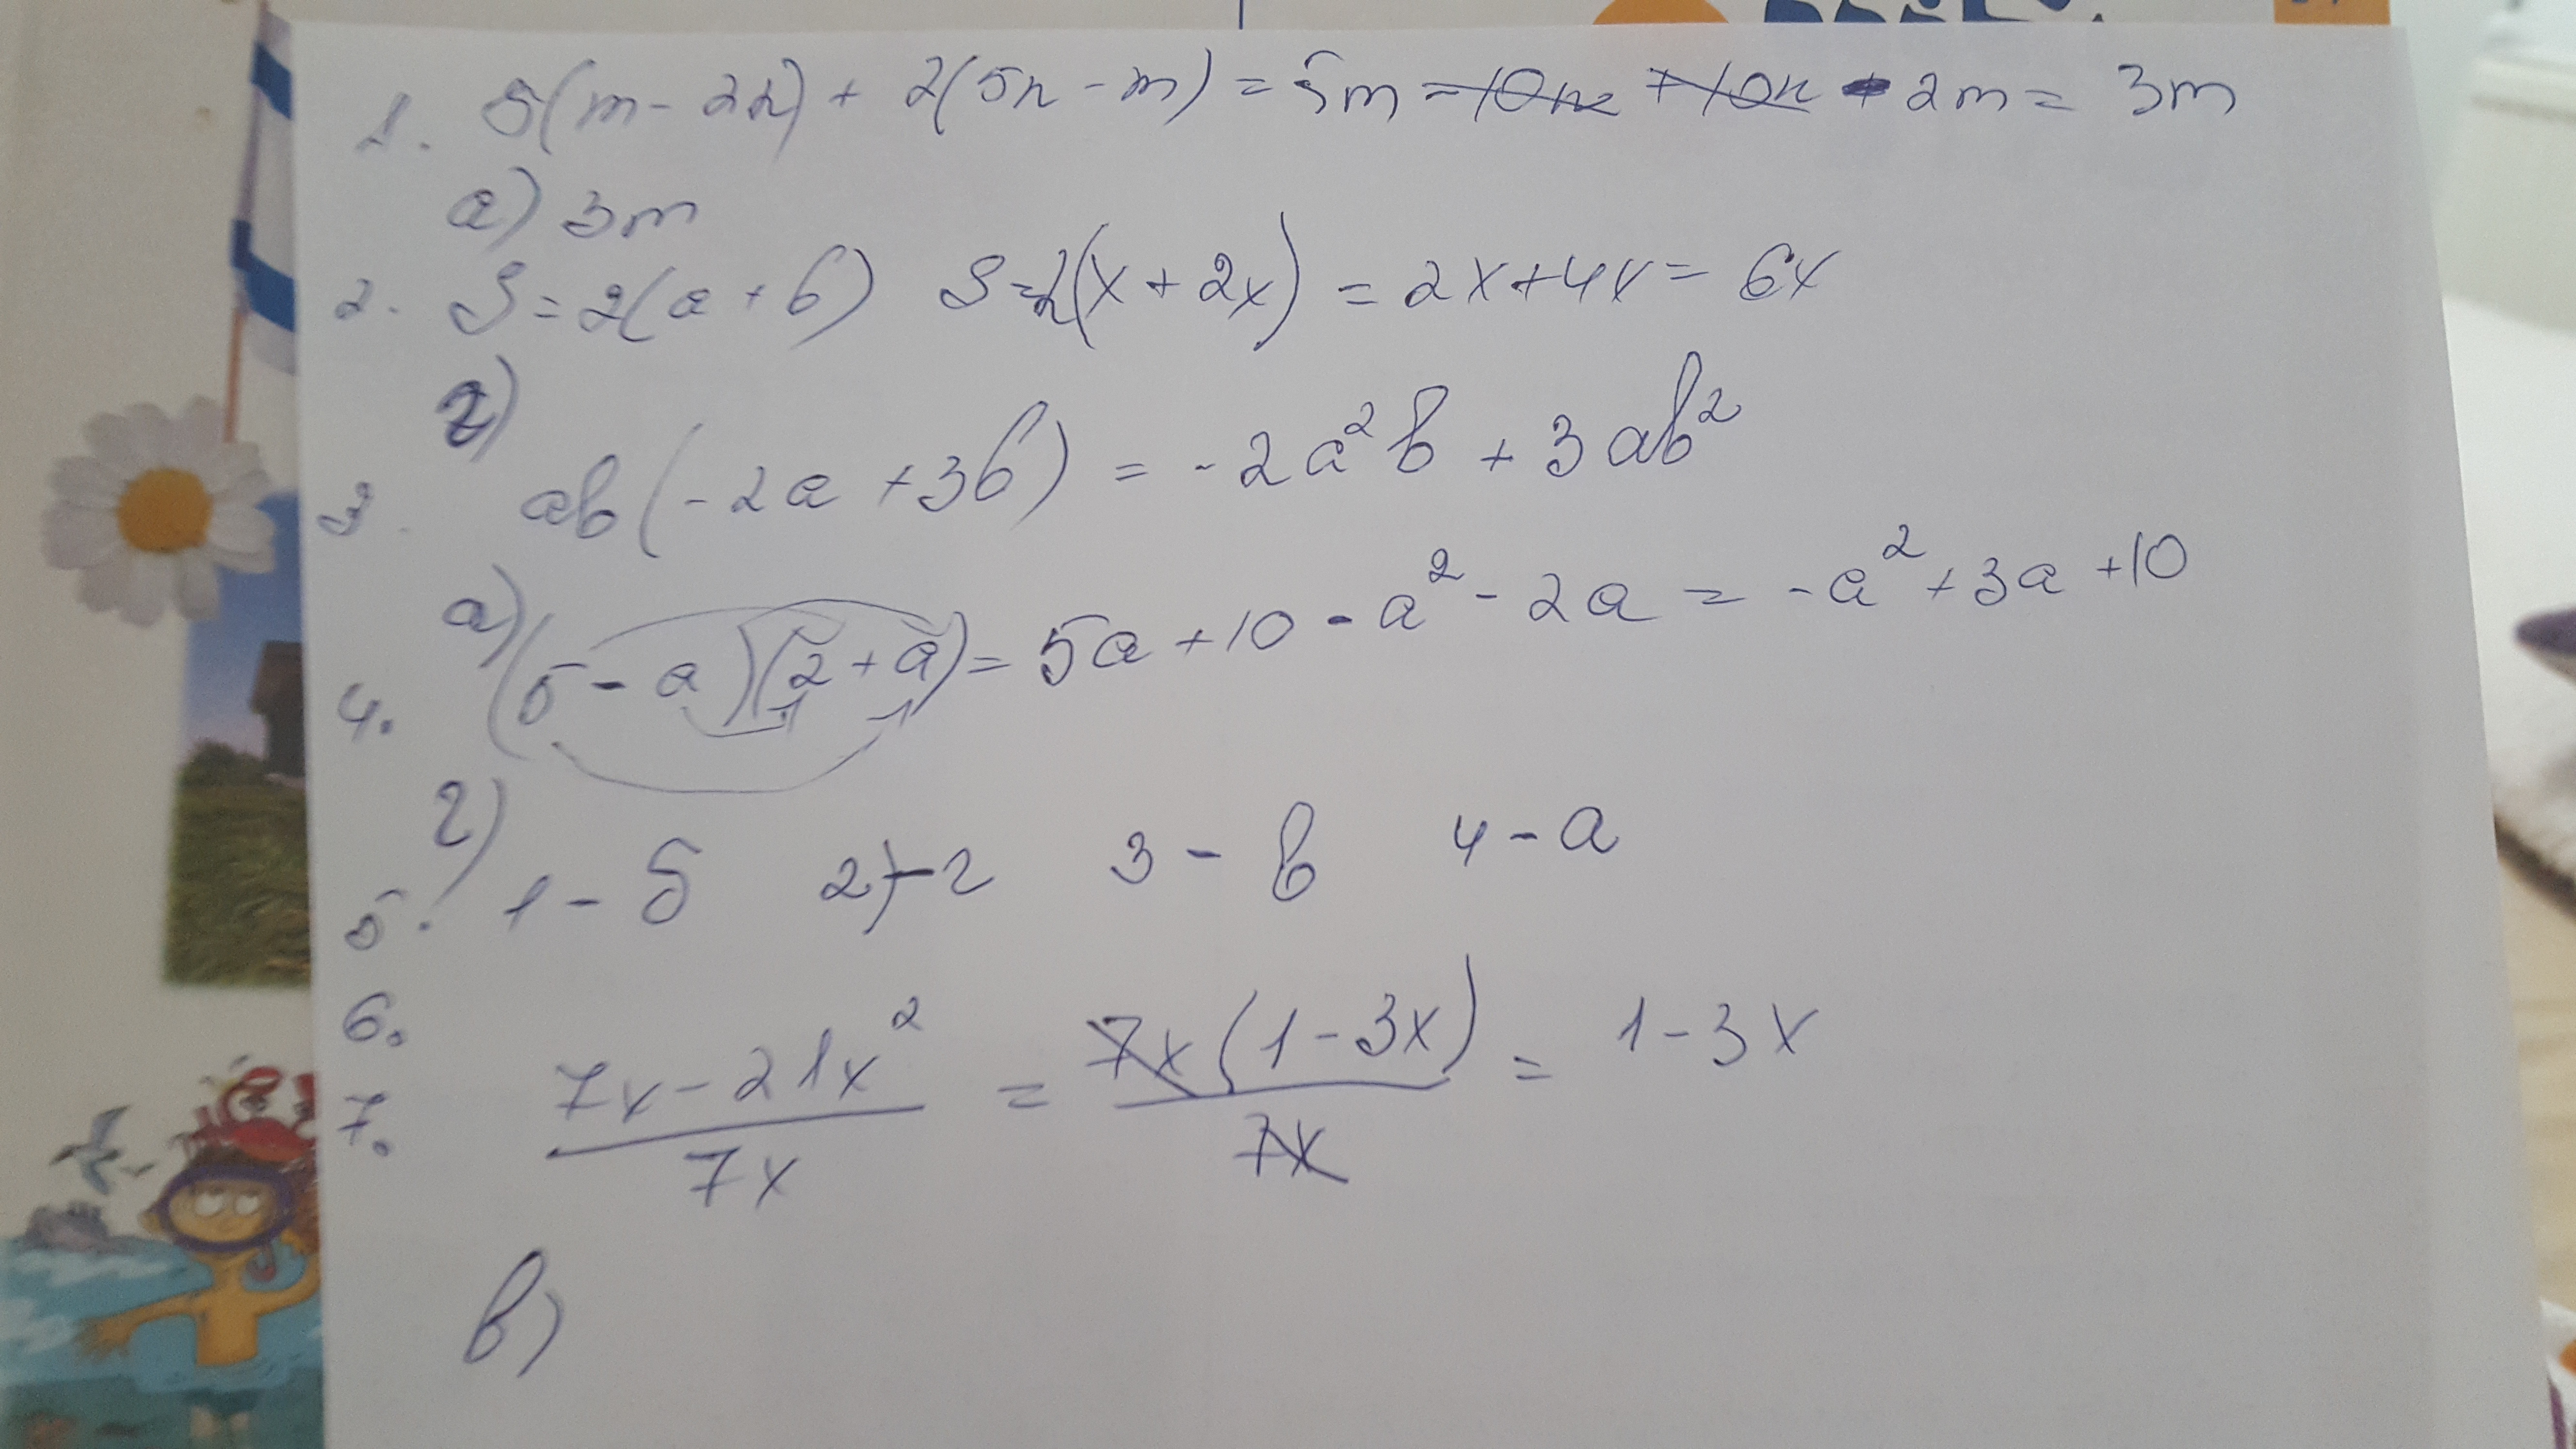 1. 5(m - 2n) + 2(5n - m) = 5m - 10n + 10n - 2m = 3m
а) 3m
2. S = 2(a + b) S = 2(x + 2x) = 2x + 4x = 6x
г)
3. ab(-2a + 3b) = -2a²b + 3ab²
а)
4. (5 - a)(2 + a) = 5a + 10 - a² - 2a = -a² + 3a + 10
г)
5. 1 - б 2) - г 3 - в 4 - а
6.
7. (7x - 21x²)/7x = 7x(1 - 3x)/7x = 1 - 3x
в)